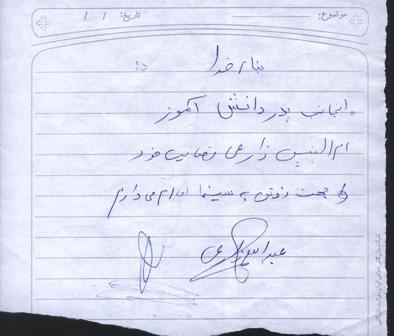 موضوع: تاریخ: / /
بنام خدا
اینجانب پدر دانش آموز
ام البنین زارعی رضایت خود
را جهت رفتن به سینما اعلام می دارم
عبدالله زارعی